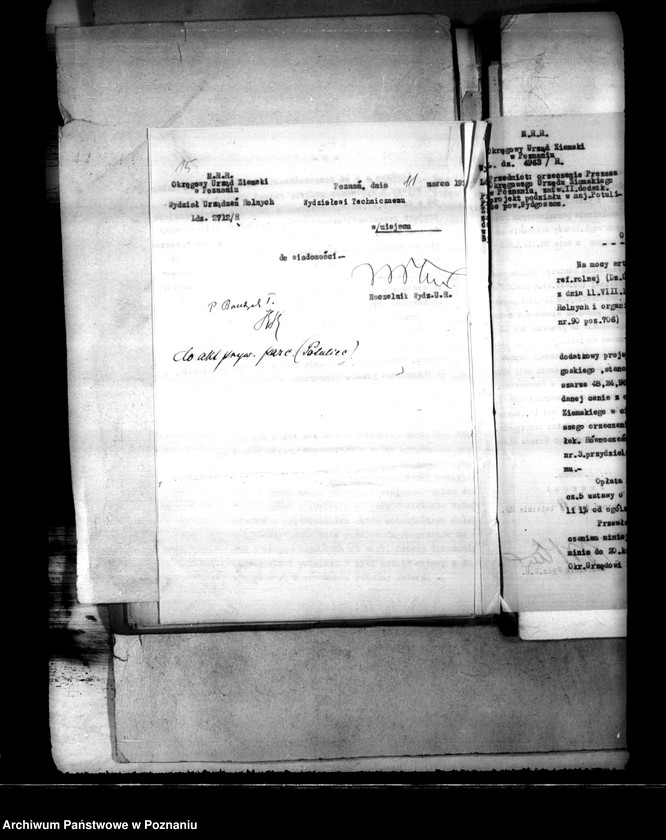 15
M.R.R.
Okręgowy Urząd Ziemski
w Poznaniu
Wydział Urządzeń Rolnych
Ldz. 2712/R
Poznań, dnia 11 marca 19
Wydziałowi Technicznemu
w/miejscu
do wiadomości.-
Naczelnik Wydz.U.R.
do akt pryw. parc. (Potulice)
M.R.R.
Okręgowy Urząd Ziemski
w Poznaniu
L. dz. 4963/R.
Przedmiot: orzeczenie Prezesa
Okręgowego Urzędu Ziemskiego
w Poznaniu, zatw.II.dodatk.
projekt podziału w maj.Potuli-
ce pow.Bydgoszcz.
O
Na mocy art
ref.rolnej (Dz.U
z dnia 11.VIII.1
Rolnych i organi
nr.90 poz.706)
dodatkowy proje
goskiego ,stano
szarze 48,24,96
danej osnie z o
Ziemskiego w
szego orzeczeni
łek. Równocześ
nr.3.przydziel
mu.-
Opłata
cz.5 ustawy o
li 1% od ogóln
Przewła
czeniem niniej
minie do 20.k
Okr.Urzędowi
Archiwum Państwowe w Poznaniu